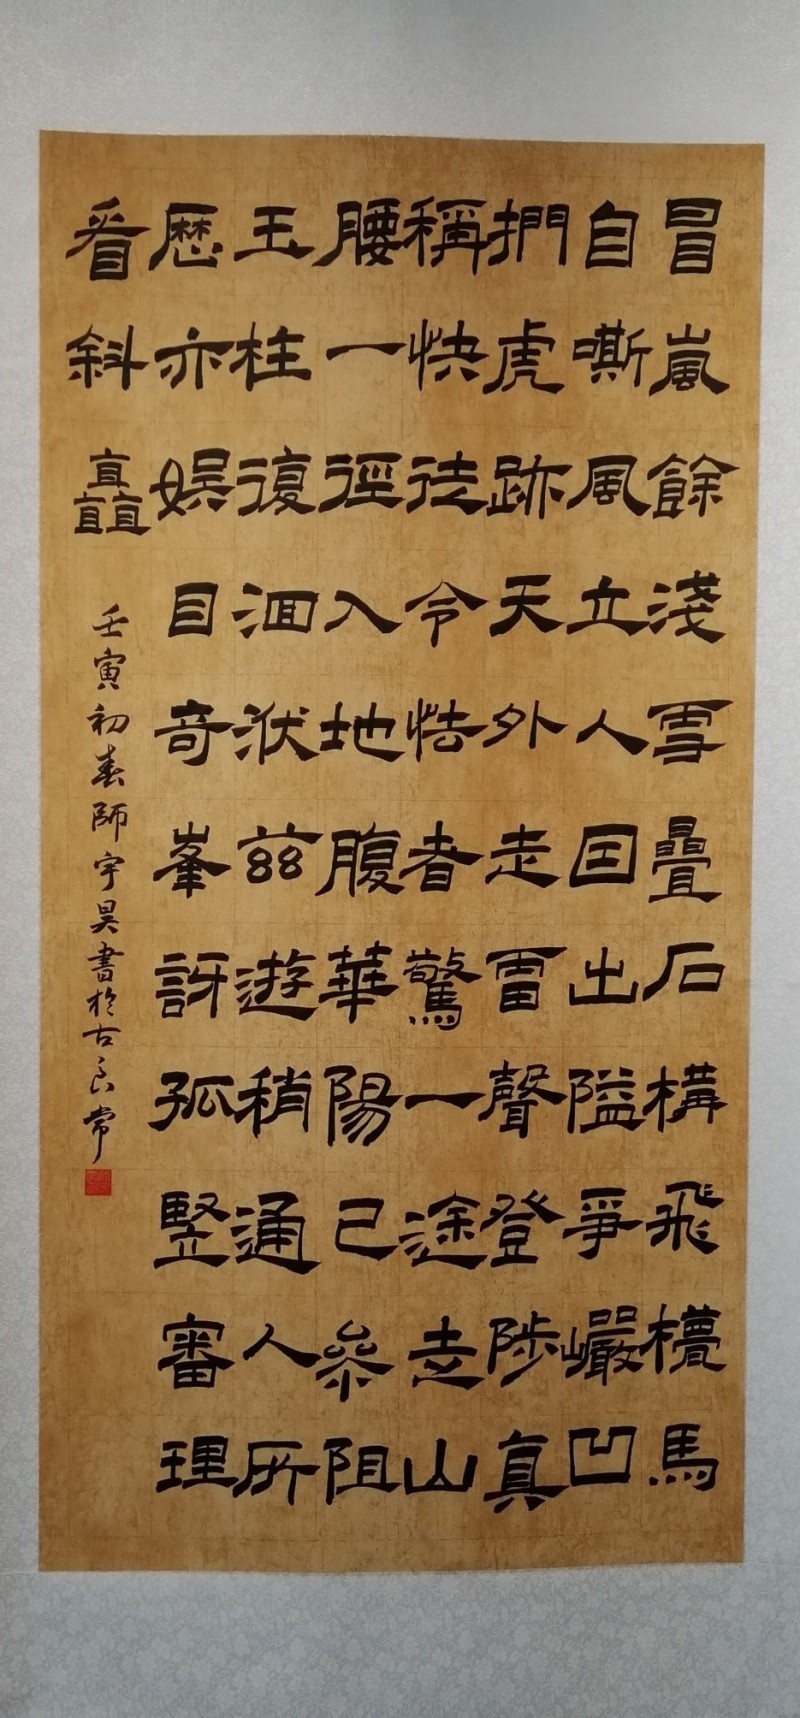 冒嵐餘淺雪疊石構飛櫈馬
自嘶風立人囯出隘爭巖凹
捫虎跡天外走雷聲登陟真
稱快徒令怯者驚一途走山
腰一徑入地腹華陽已參阻
玉柱復洄洑茲遊稍通人所
歷亦娛目奇峯訝孤竪審理
看斜矗
壬寅初春師宇昊書於古良常